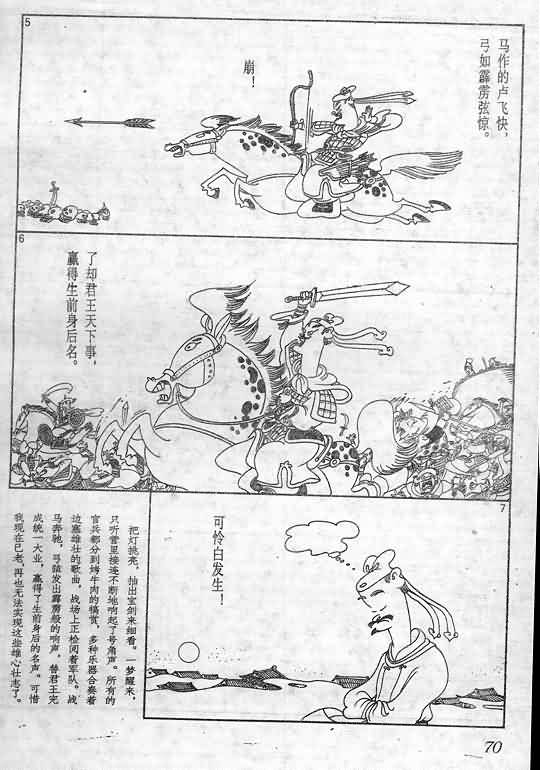 5
马作的卢飞快，
弓如霹雳弦惊。
崩！
6
了却君王天下事，
赢得生前身后名。
7
可怜白发生！
把灯挑亮，抽出宝剑来细看。一梦醒来，
只听营里接连不断地响起了号角声。所有的
官兵都分到烤牛肉的犒赏，多种乐器合奏着
边塞雄壮的歌曲，战场上正检阅着军队。战
马奔驰，弓箭发出霹雳般的响声，替君王完
成统一大业，赢得了生前身后的名声。可惜
我现在已老，再也无法实现这些雄心壮志了。
70